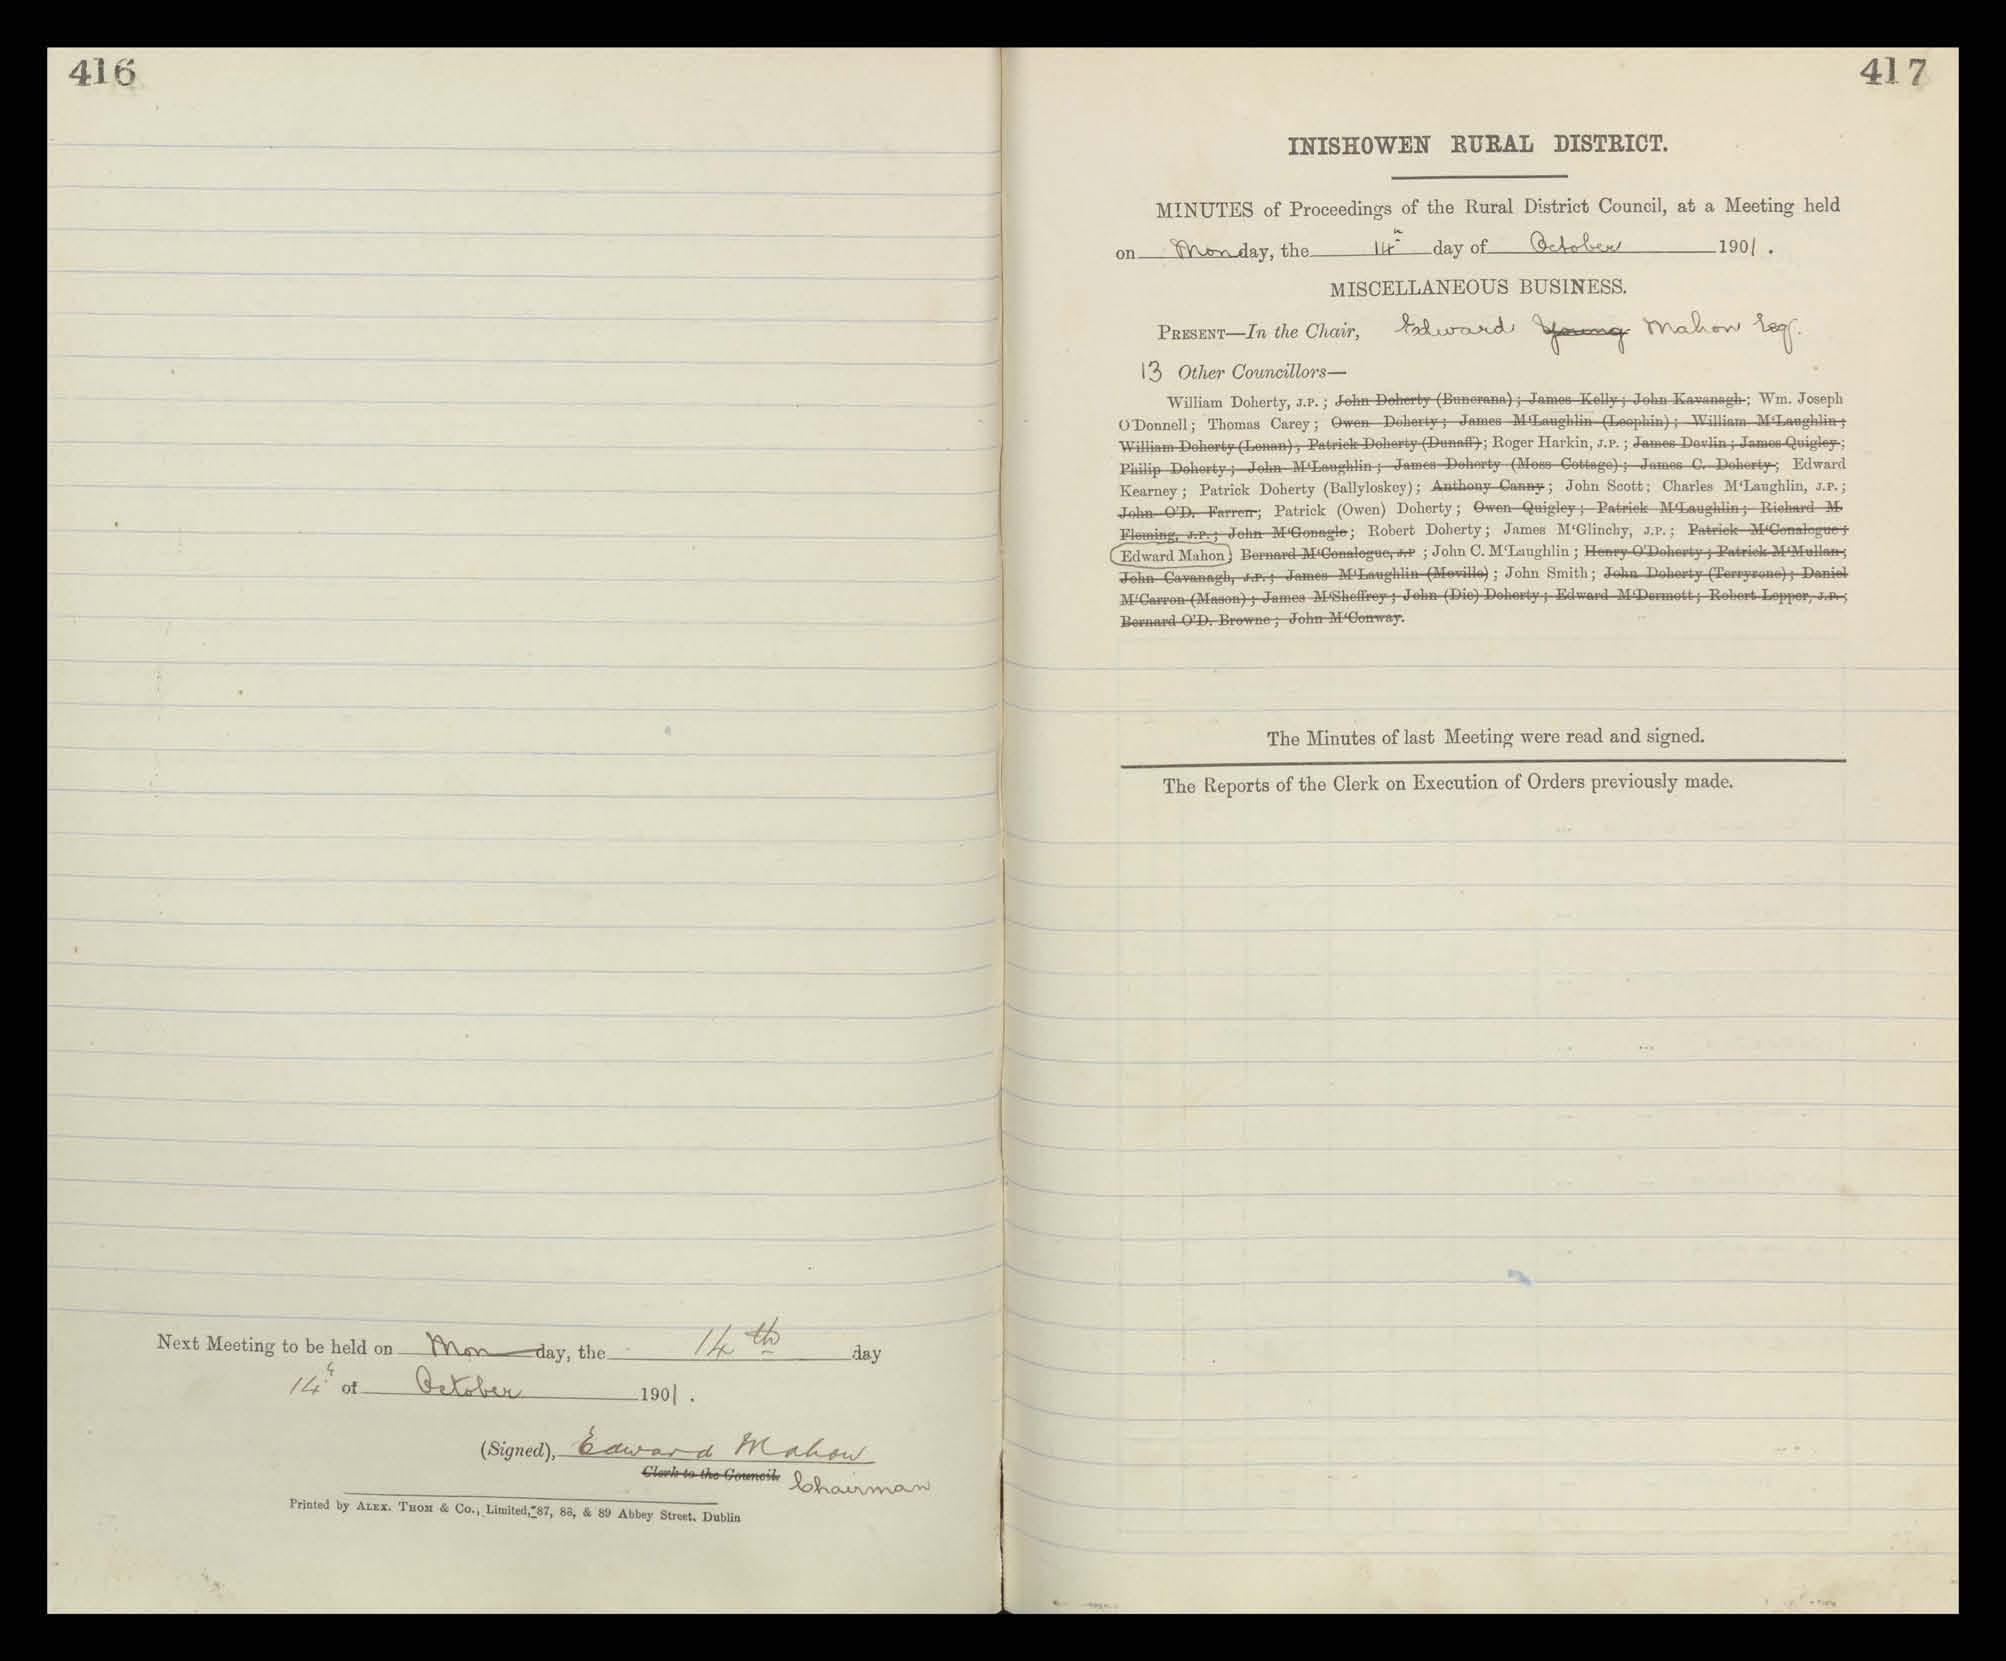 416
Next Meeting to be held on Monday, the 14th day
14th of October 1901.
(Signed), Edward Mahon
Clerk to the Council. Chairman
Printed by ALEX. THOM & Co., Limited, 87, 88, & 89 Abbey Street, Dublin
417
INISHOWEN RURAL DISTRICT.
MINUTES of Proceedings of the Rural District Council, at a Meeting held
on Monday, the 14th day of October 1901.
MISCELLANEOUS BUSINESS.
PRESENT—In the Chair, Edward Young Mahon Esq.
13 Other Councillors—
William Doherty, J.P.; John Doherty (Buncrana); James Kelly; John Kavanagh; Wm. Joseph
O'Donnell; Thomas Carey; Owen Doherty; James M'Laughlin (Leophin); William M'Laughlin;
William Doherty (Lenan); Patrick Doherty (Dunaff); Roger Harkin, J.P.; James Devlin; James Quigley;
Philip Doherty; John M'Laughlin; James Doherty (Moss Cottage); James C. Doherty; Edward
Kearney; Patrick Doherty (Ballyloskey); Anthony Canny; John Scott; Charles M'Laughlin, J.P.;
John O'D. Farren; Patrick (Owen) Doherty; Owen Quigley; Patrick M'Laughlin; Richard M.
Fleming, J.P.; John M'Gonagle; Robert Doherty; James M'Glinchy, J.P.; Patrick M'Conalogue;
Edward Mahon; Bernard M'Conalogue, J.P; John C. M'Laughlin; Henry O'Doherty; Patrick M'Mullan;
John Cavanagh, J.P.; James M'Laughlin (Moville); John Smith; John Doherty (Terryrone); Daniel
M'Carron (Mason); James M'Sheffrey; John (Die) Doherty; Edward M'Dermott; Robert Lepper, J.P.;
Bernard O'D. Browne; John M'Conway.
The Minutes of last Meeting were read and signed.
The Reports of the Clerk on Execution of Orders previously made.